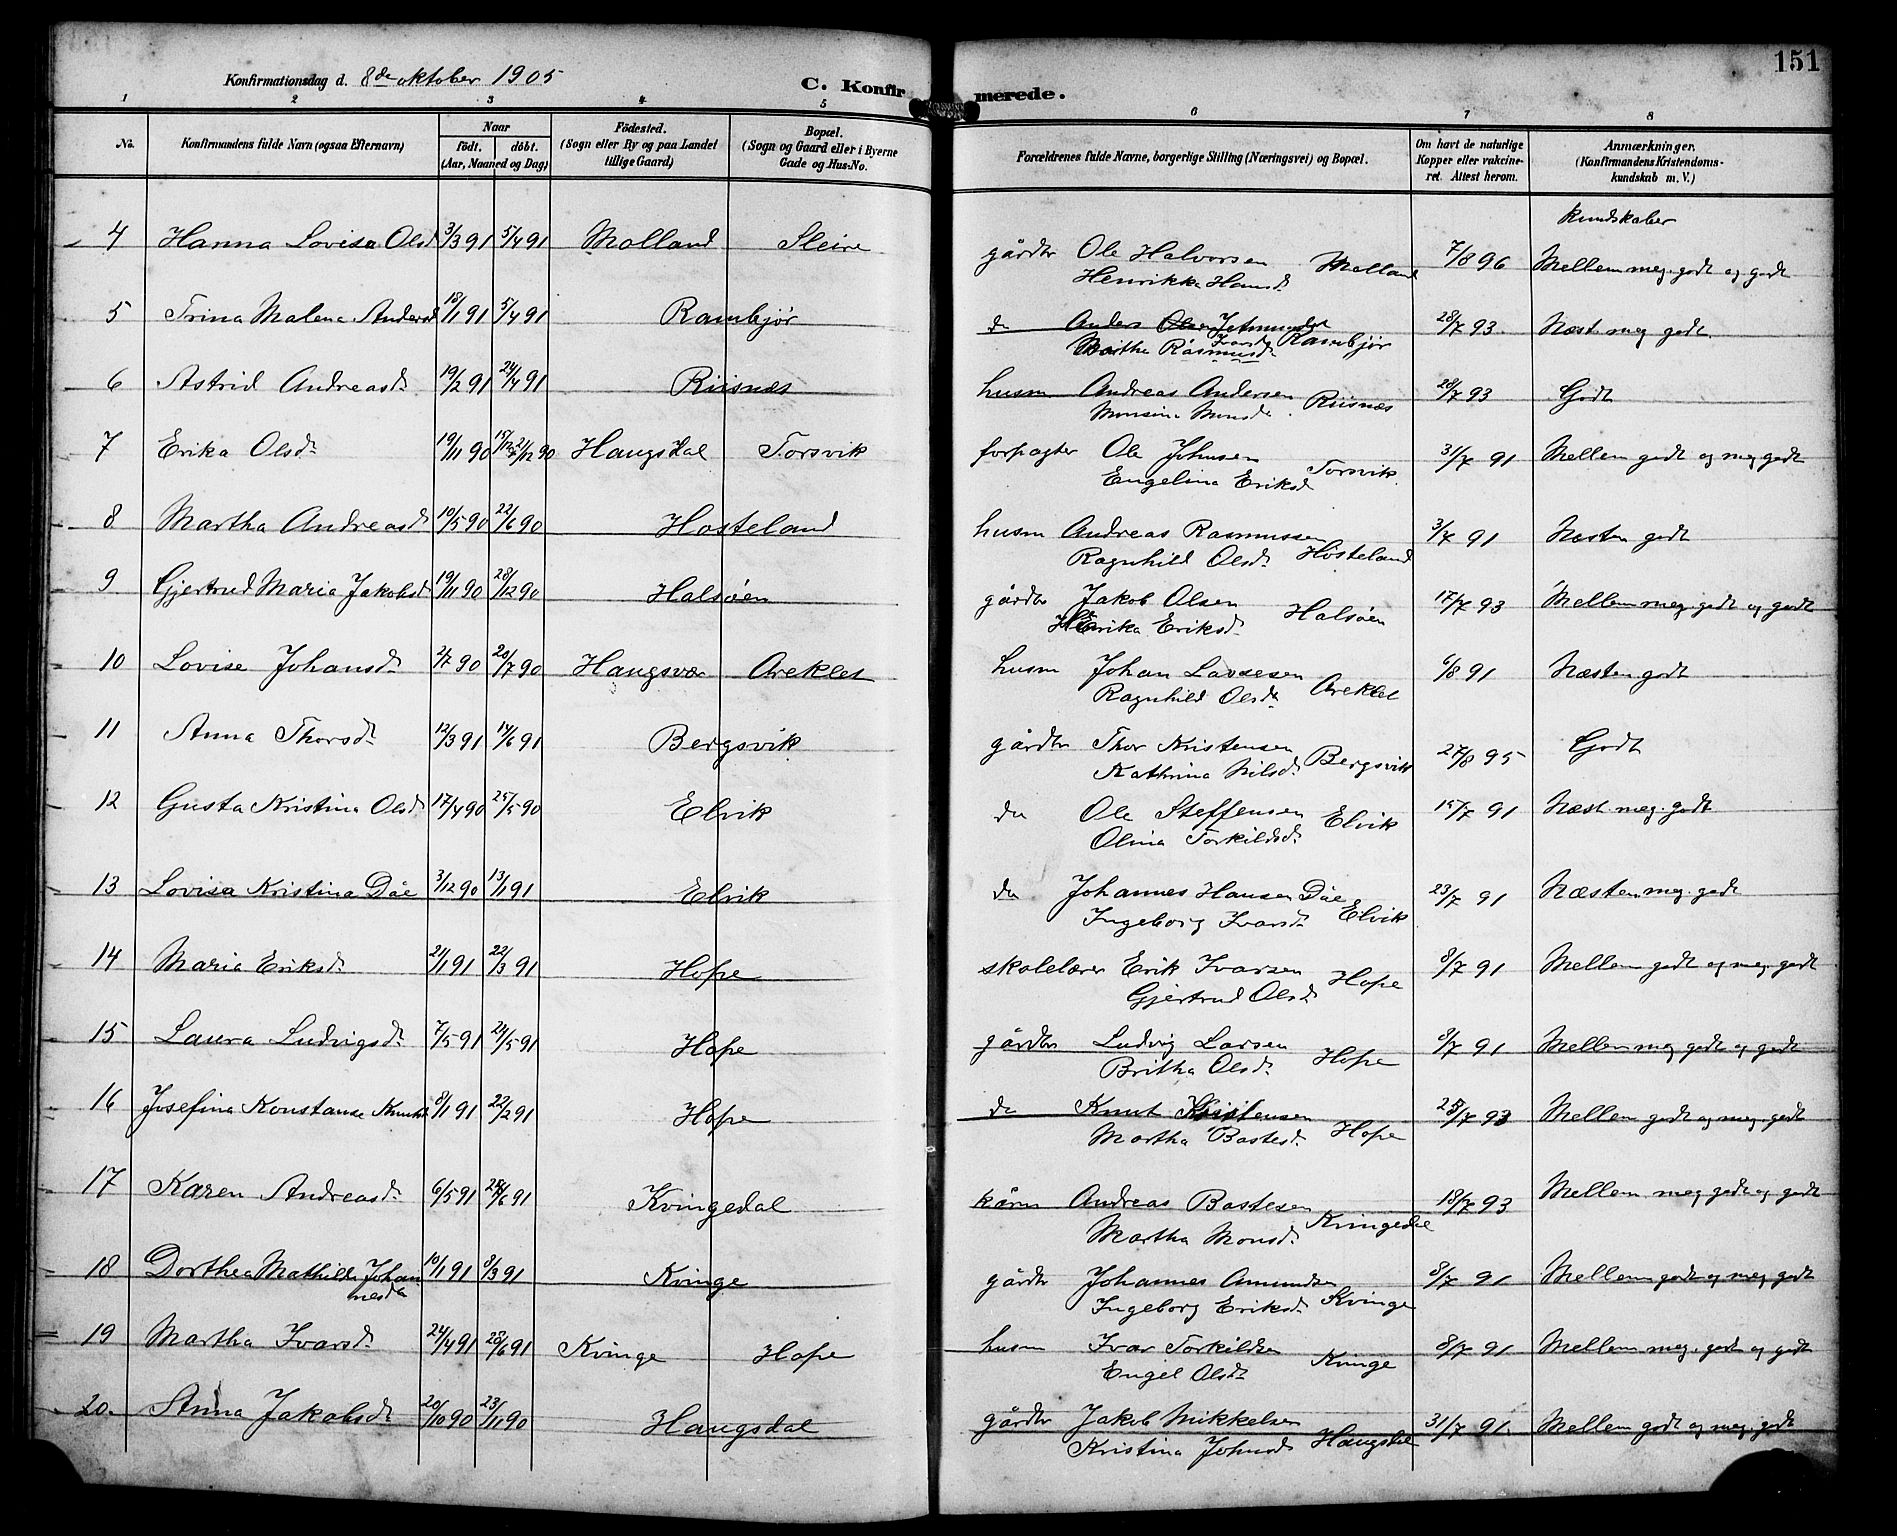 151
Konfirmationsdag d. 8de oktober 1905
C. Konfirmerede.
1 2 3 4 5 6 7 8
No. Konfirmandens fulde Navn (ogsaa Efternavn) Naar født. døbt. (Aar, Maaned og Dag) Fødested. (Sogn eller By og paa Landet tillige Gaard) Bopæl. (Sogn og Gaard eller i Byerne Gade og Hus-No. Forældrenes fulde Navne, borgerlige Stilling (Næringsvei) og Bopæl. Om havt de naturlige Kopper eller vakcineret. Attest herom. Anmærkninger. (Konfirmandens Kristendomskundskab m. V.)
kundskaber
4 Hanna Lovisa Olsd 3/3 91 5/4 91 Molland Sleire gårdbr Ole Halvorsen Molland 7/8 96 Mellem meg. godt og godt
Henrikka Hansd.
5 Trina Malena Andersd 18/1 91 5/4 91 Rambjør do Anders 28/7 93. Næst. meg godt.
Martha Rasmusd. Rambjør
6 Astrid Andreasd. 19/2 91 24/4 91 Riisnæs husm Andreas Andersen Riisnæs 28/7 93 Godt
Monsina Monsd.
7 Erika Olsd. 19/11 90 21/12 90 Haugsdal Torsvik forpagter Ole Johnsen Torsvik. 31/7 91 Mellem godt og meg godt
Engelina Eriksd
8 Martha Andreasd 10/5 90 22/6 90 Hosteland husm Andreas Rasmussen 3/7 91 Næsten godt
Ragnhild Olsd. Hosteland
9 Gjertrud Maria Jakobsd 19/11 90 28/12 90 Halsøen gårdbr Jakob Olsen Halsøen 17/7 93 Mellem meg. godt og godt
Eriksd.
10 Lovise Johansd. 2/7 90 20/7 90 Haugsvær Areklet husm Johan Lassesen Areklet 6/8 91 Næsten godt
Ragnhild Olsd.
11 Anna Thorsd. 12/3 91 14/6 91 Bergsvik gårdbr Thor Kristensen Bergsvik 27/8 95 Godt
Kathrina Nilsd.
12 Gusta Kristina Olsd 17/4 90 25/5 90 Elvik do Ole Steffensen Elvik 15/7 91 Næst. meg. godt
Olina Torkildsd.
13 Lovisa Kristina Dåe 3/12 90 13/1 91 Elvik do Johannes Hansen Dåe, 23/7 91 Næsten meg. godt
Ingeborg Ivarsd. Elvik
14 Maria Eriksd. 21/1 91 22/3 91 Hope skolelærer Erik Ivarsen Hope 8/7 91 Mellem godt og meg. godt
Gjertrud Olsd.
15 Laura Ludvigsd. 7/5 91 24/5 91 Hope gårdbr Ludvig Larsen Hope 8/7 91 Mellem meg godt og godt
Britha Olsd.
16 Josefina Konstanse Knutsd 8/1 91 22/2 91 Hope do Knut Kristensen Hope 93 Mellem godt og meg. godt
Martha Bastesd.
17 Karen Andreasd. 6/5 91 Kvingedal kårm Andreas Bastesen 18/7 93 Mellem meg godt og godt
Martha Monsd. Kvingedal
18 Dorthea Mathilde Johannesd 10/1 91 8/3 91 Kvinge gårdbr Johannes Amundsen 8/7 91 Mellem godt og meg godt
Ingeborg Eriksd. Kvinge
19 Martha Ivarsd. 24/4 91 28/6 91 Kvinge Hope husm Ivar Torkildsen Kvinge 8/7 91 Mellem meg. godt og godt
Engel Olsdt
20. Anna Jakobsd. 20/10 90 23/11 90 Haugsdal gårdbr Jakob Mikkelsen 31/7 91. Mellem godt og meg. godt
Kristina Johnsd. Haugsdal